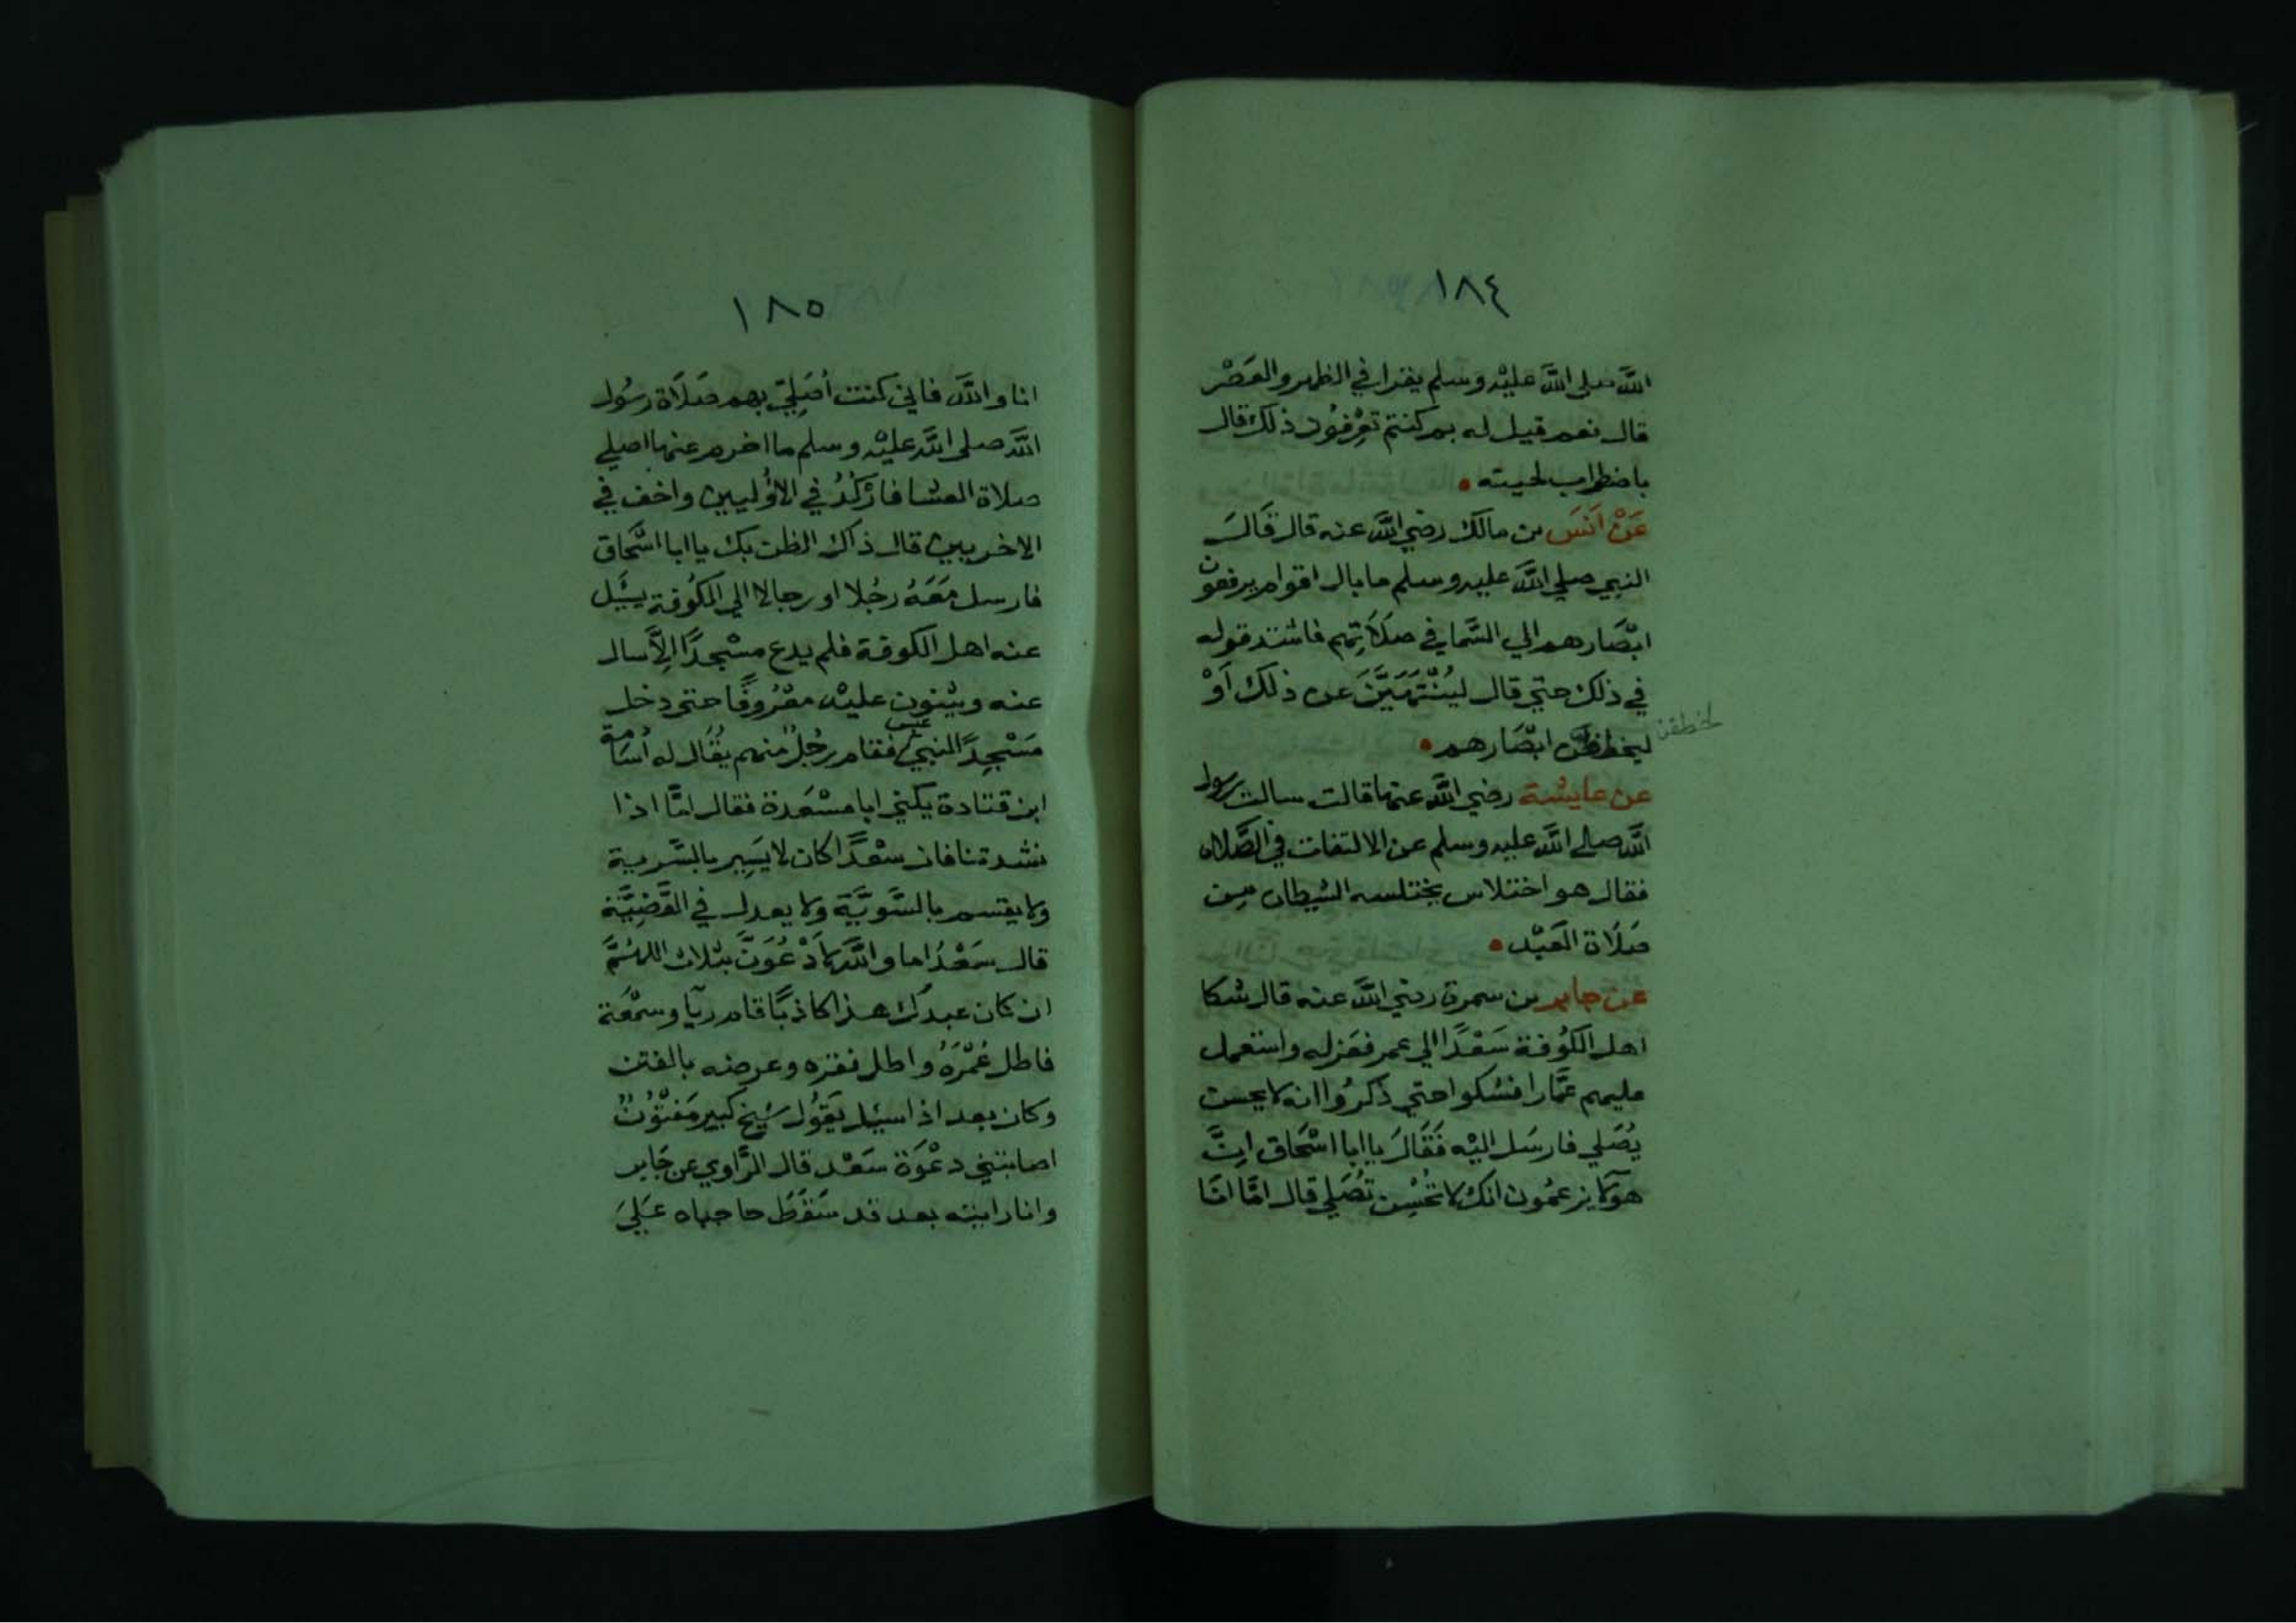 ١٨٤
الله صلى الله عليْه وسلم يقرا في الظهر والعَصْر
قال نعم قيل له بم كنتم تعْرفُون ذلك قال
باضطراب لحيته
عَنْ اَنَسَ بن مالك رضي الله عنه قال قَالَ
النبي صلي الله عليه وسلم ما بال اقوام يرفعون
ابْصَارهم الي السَّما في صلَاتِهم فاشتد قوله
في ذلك حتي قال ليُنْتَهَيَنَّ عن ذلك اَوْ
ليخطفن ابْصَارهم
لخطفن
عن عايشة رضي الله عنها قالت سالت رسول
الله صلي الله عليه وسلم عن الالتفات في الصَّلاه
فقال هو اختلاس يختلسه الشيطان من
صَلَاة العَبْد
عن جابر بن سمرة رضي الله عنه قال شكا
اهل الكُوفة سَعْدًا الي عمر فعَزله واستعمل
عليهم عَمَّارا فشكوا حتي ذكرُوا انه لا يحسن
يُصَلي فارسَل اليْه فَقَالَ يا ابا اسْحَاق اِنَّ
هولا يزعمُون انك لا تحُسِن تُصَلي قال امَّا انَا
١٨٥
انا والله فاني كنت أصَلِيّ بهم صَلَاة رسُول
الله صلى الله عليْه وسلم ما اخرم عنها اصلي
صلاة العشا فارْكُدُ في الاوُليين واخف في
الاخريين قال ذاك الظن بك يا ابا اسْحَاق
فارسل مَعَهُ رجُلا او رجالا الي الكُوفة يسَيل
عنه اهل الكوفة فلم يدع مسْجدًا اِلاَّ سال
عنه ويثنون عليْه معْرُوفًا حتى دخل
مَسْجِدً النبي عبس فقام رجُلٌ منهم يقُال له اُسَامة
ابن قتادة يكني ابا مسْعَدة فقال امَّا اذا
نشدتنا فان سعْدًا كان لا يَسِير بالسَّرية
ولا يقتسم بالسَّويَّة ولا يعدل في القَضِيَّة
قال سَعْدُ اما والله لَادْعُوَنَّ بثلاث اللهُمَّ
ان كان عبدك هذا كاذبًا قام ريآ وسمْعَة
فاطل عُمْرَهُ واطل فقره وعرضه بالفتن
وكان بعد اذا سيل يَقوُل شيخ كبير مَفتُوْنٌ
اصابتني دعْوَة سَعْد قال الرَّاوي عن جَابر
وانا رايته بعد قد سَقَطَ حاجباه عَلَيَ